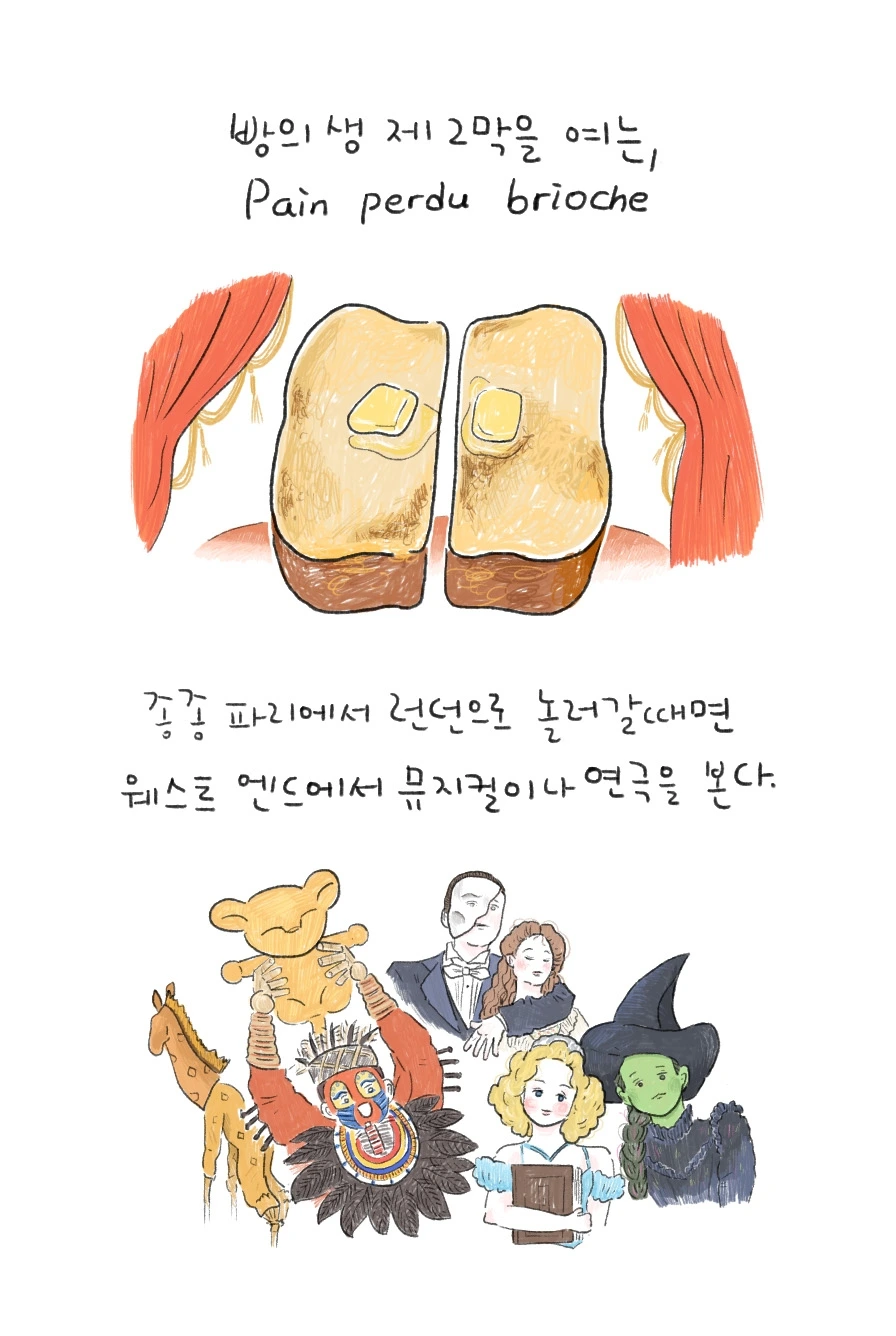 빵의 생 제2막을 여는,
Pain perdu brioche
종종 파리에서 런던으로 놀러갈때면
웨스트 엔드에서 뮤지컬이나 연극을 본다.